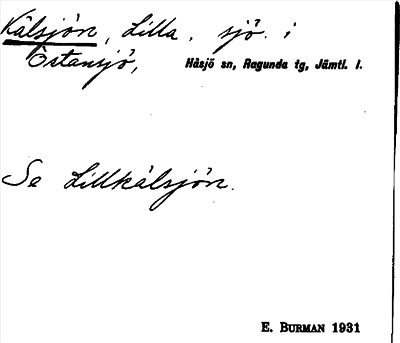 Kälsjön, Lilla, sjö i
Östansjö, Håsjö sn, Ragunda tg, Jämtl. l.
Se Lillkälsjön.
E. BURMAN 1931